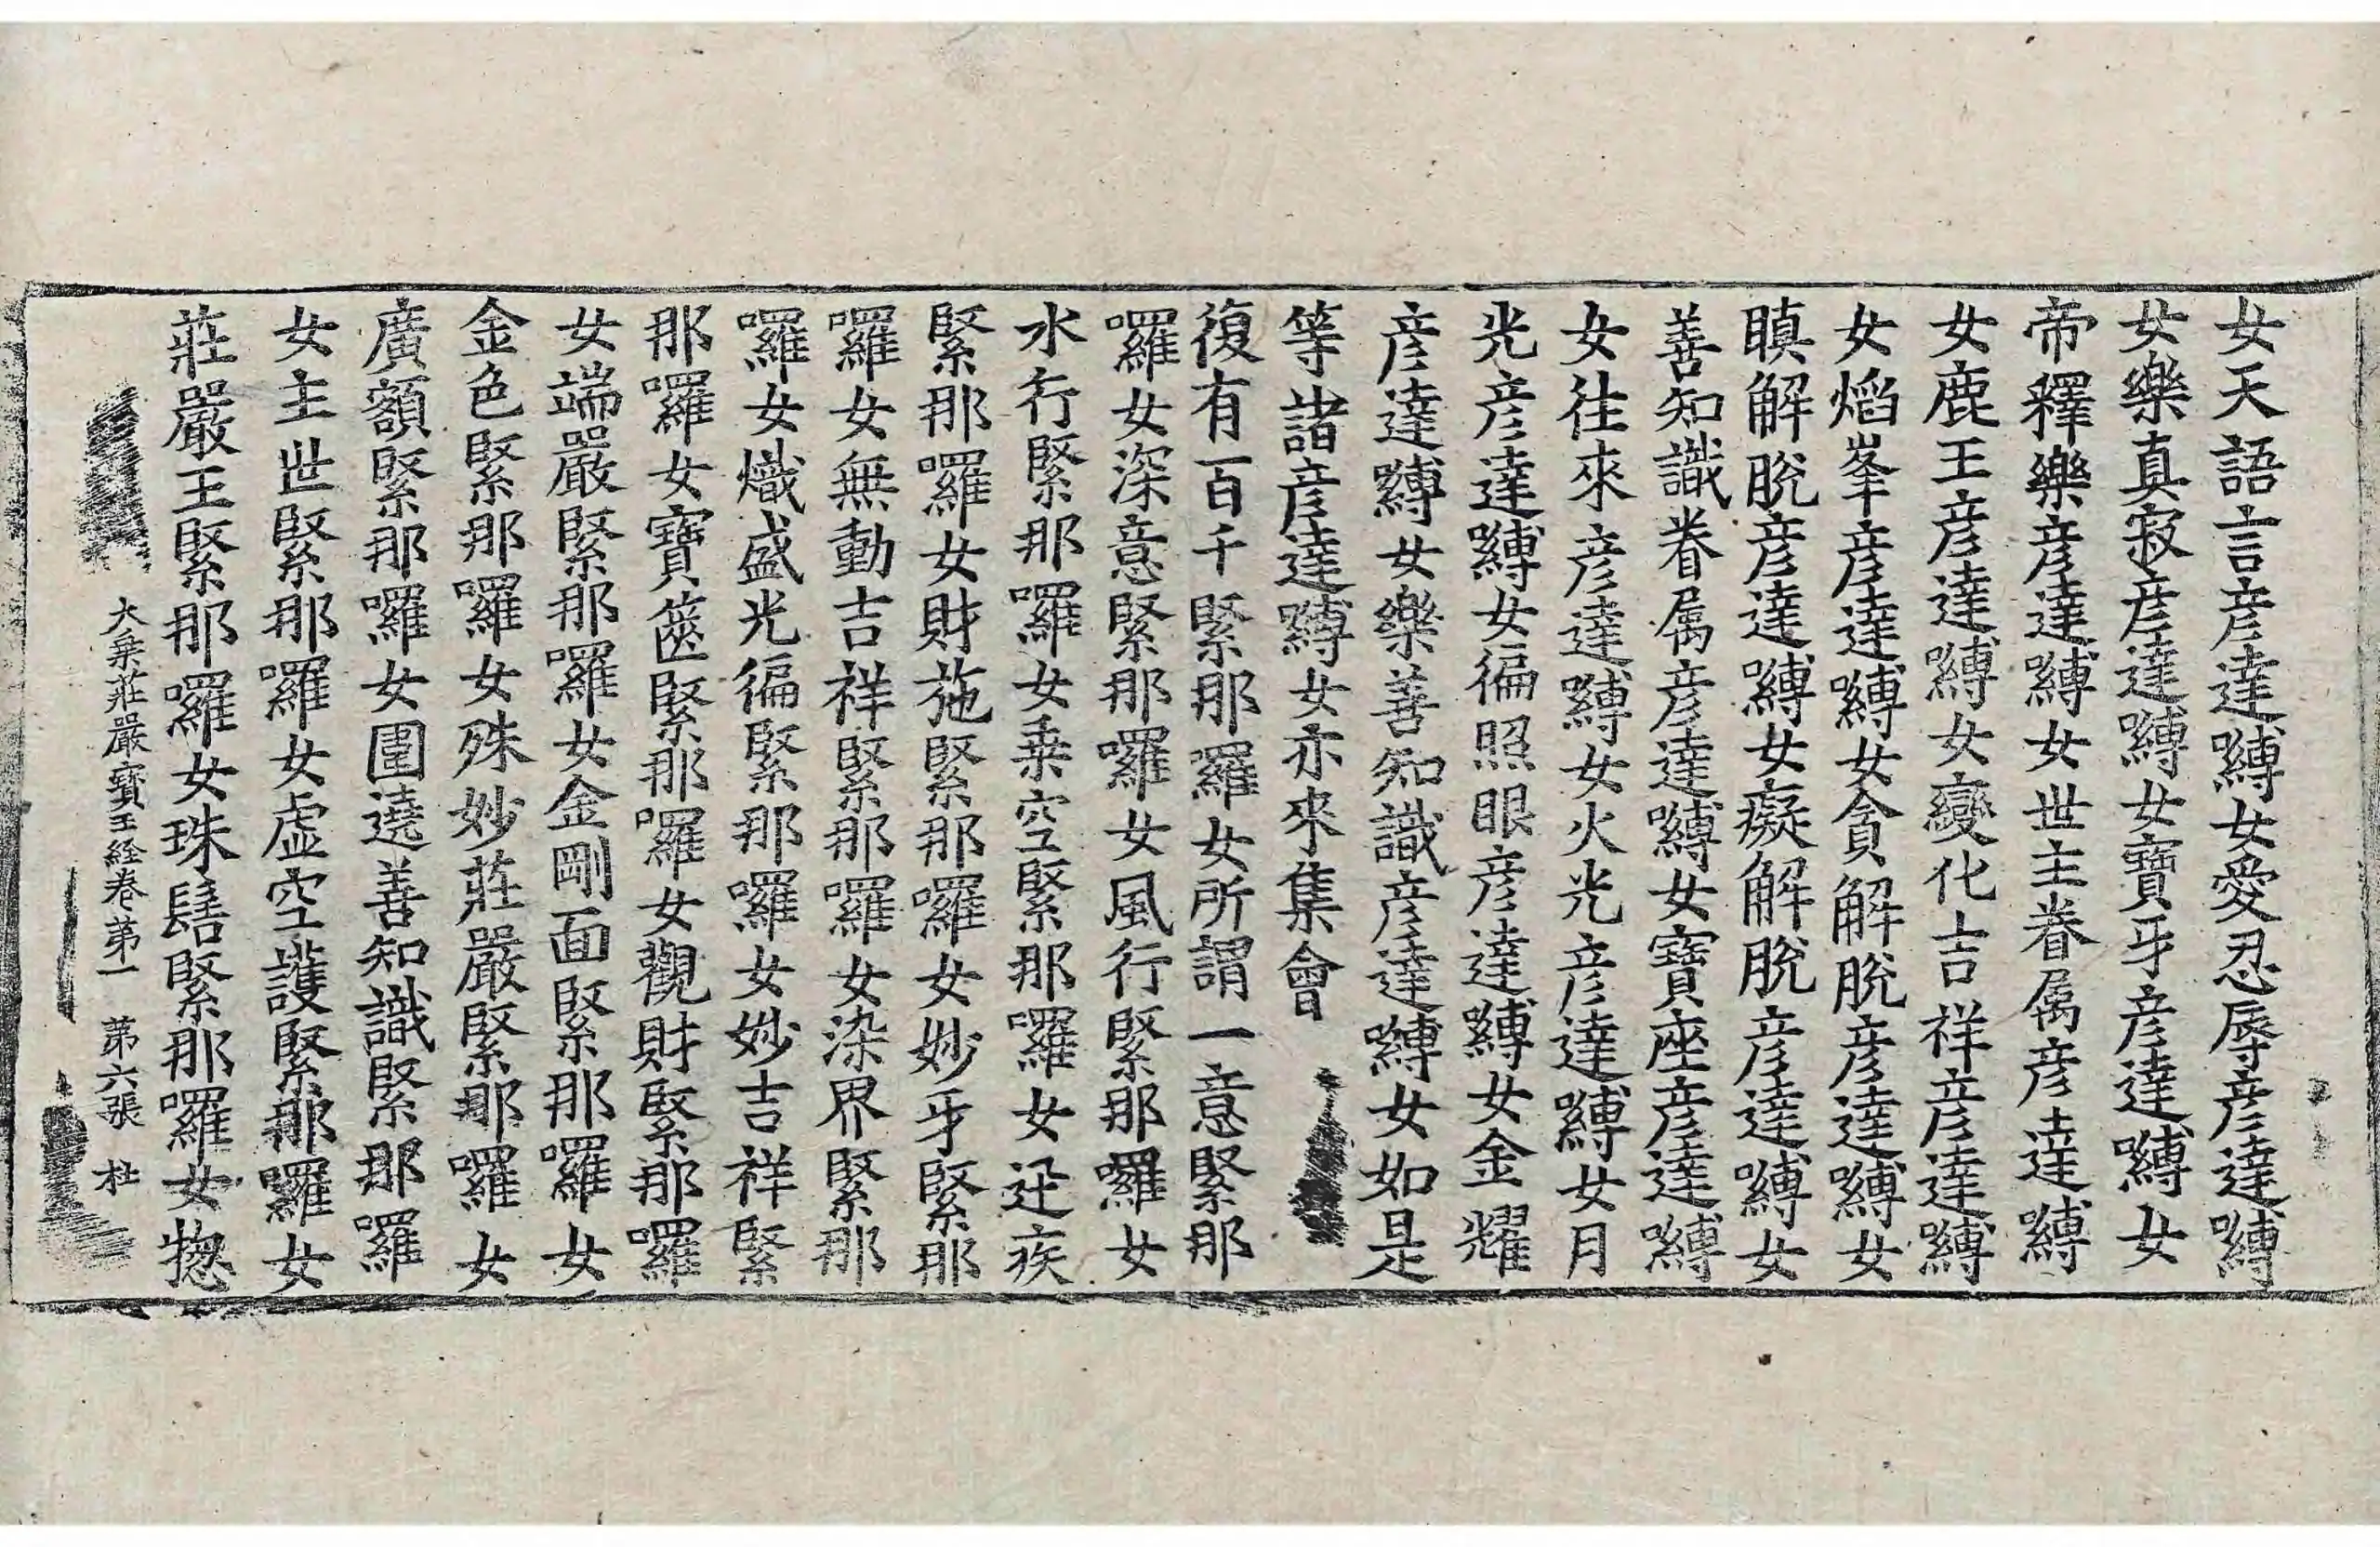 女天語言彦達嚩女愛忍辱彦達嚩
女樂真寂彦達嚩女寶牙彦達嚩女
帝釋樂彦達嚩女世主眷属彦達嚩
女鹿王彦達嚩女變化吉祥彦達嚩
女焰峯彦達嚩女貪解脫彦達嚩女
瞋解脫彦達嚩女癡解脫彦達嚩女
善知識眷属彦達嚩女寶座彦達嚩
女往來彦達嚩女火光彦達嚩女月
光彦達嚩女徧照眼彦達嚩女金耀
彦達嚩女樂善知識彦達嚩女如是
等諸彦達嚩女亦來集會
復有百千緊那羅女所謂一意緊那
囉女深意緊那囉女風行緊那囉女
水行緊那囉女乗空緊那囉女迅疾
緊那囉女財施緊那囉女妙牙緊那
囉女無動吉祥緊那囉女染界緊那
囉女熾盛光徧緊那囉女妙吉祥緊
那囉女寶篋緊那囉女觀財緊那囉
女端嚴緊那囉女金剛面緊那囉女
金色緊那囉女殊妙莊嚴緊那囉女
廣額緊那囉女圍遶善知識緊那囉
女主世緊那囉女虚空護緊那囉女
莊嚴王緊那囉女珠髻緊那囉女惣
大乗莊嚴寶王經卷第一 第六張 杜